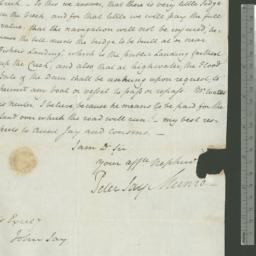 Creek. To this we answer, that there is very little sedge
on the Creek and for that little we will pay the full
value, that the navigation will not be injured, be-
cause the act makes the bridge to be built at or near
Fisher's Landing, which is the public Landing farthest
up the Creek, and also that at high water, the flood
Gate of the Dam shall be
upon request, to
permit any boat or vessel to pass or repass. Mr
is neuter, I believe, because he means to be paid for the
land over which the road will run. My best res-
pects to aunt Jay and cousins.
I am Dr Sir
your affte Nephew
Peter Jay Munro
John Jay